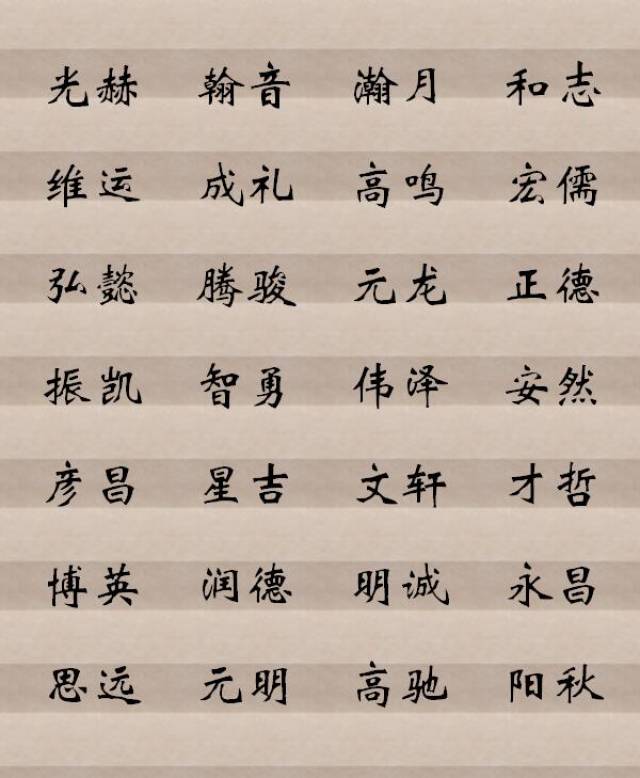 光赫 翰音 瀚月 和志
维运 成礼 高鸣 宏儒
弘懿 腾骏 元龙 正德
振凯 智勇 伟泽 安然
彦昌 星吉 文轩 才哲
博英 润德 明诚 永昌
思远 元明 高驰 阳秋